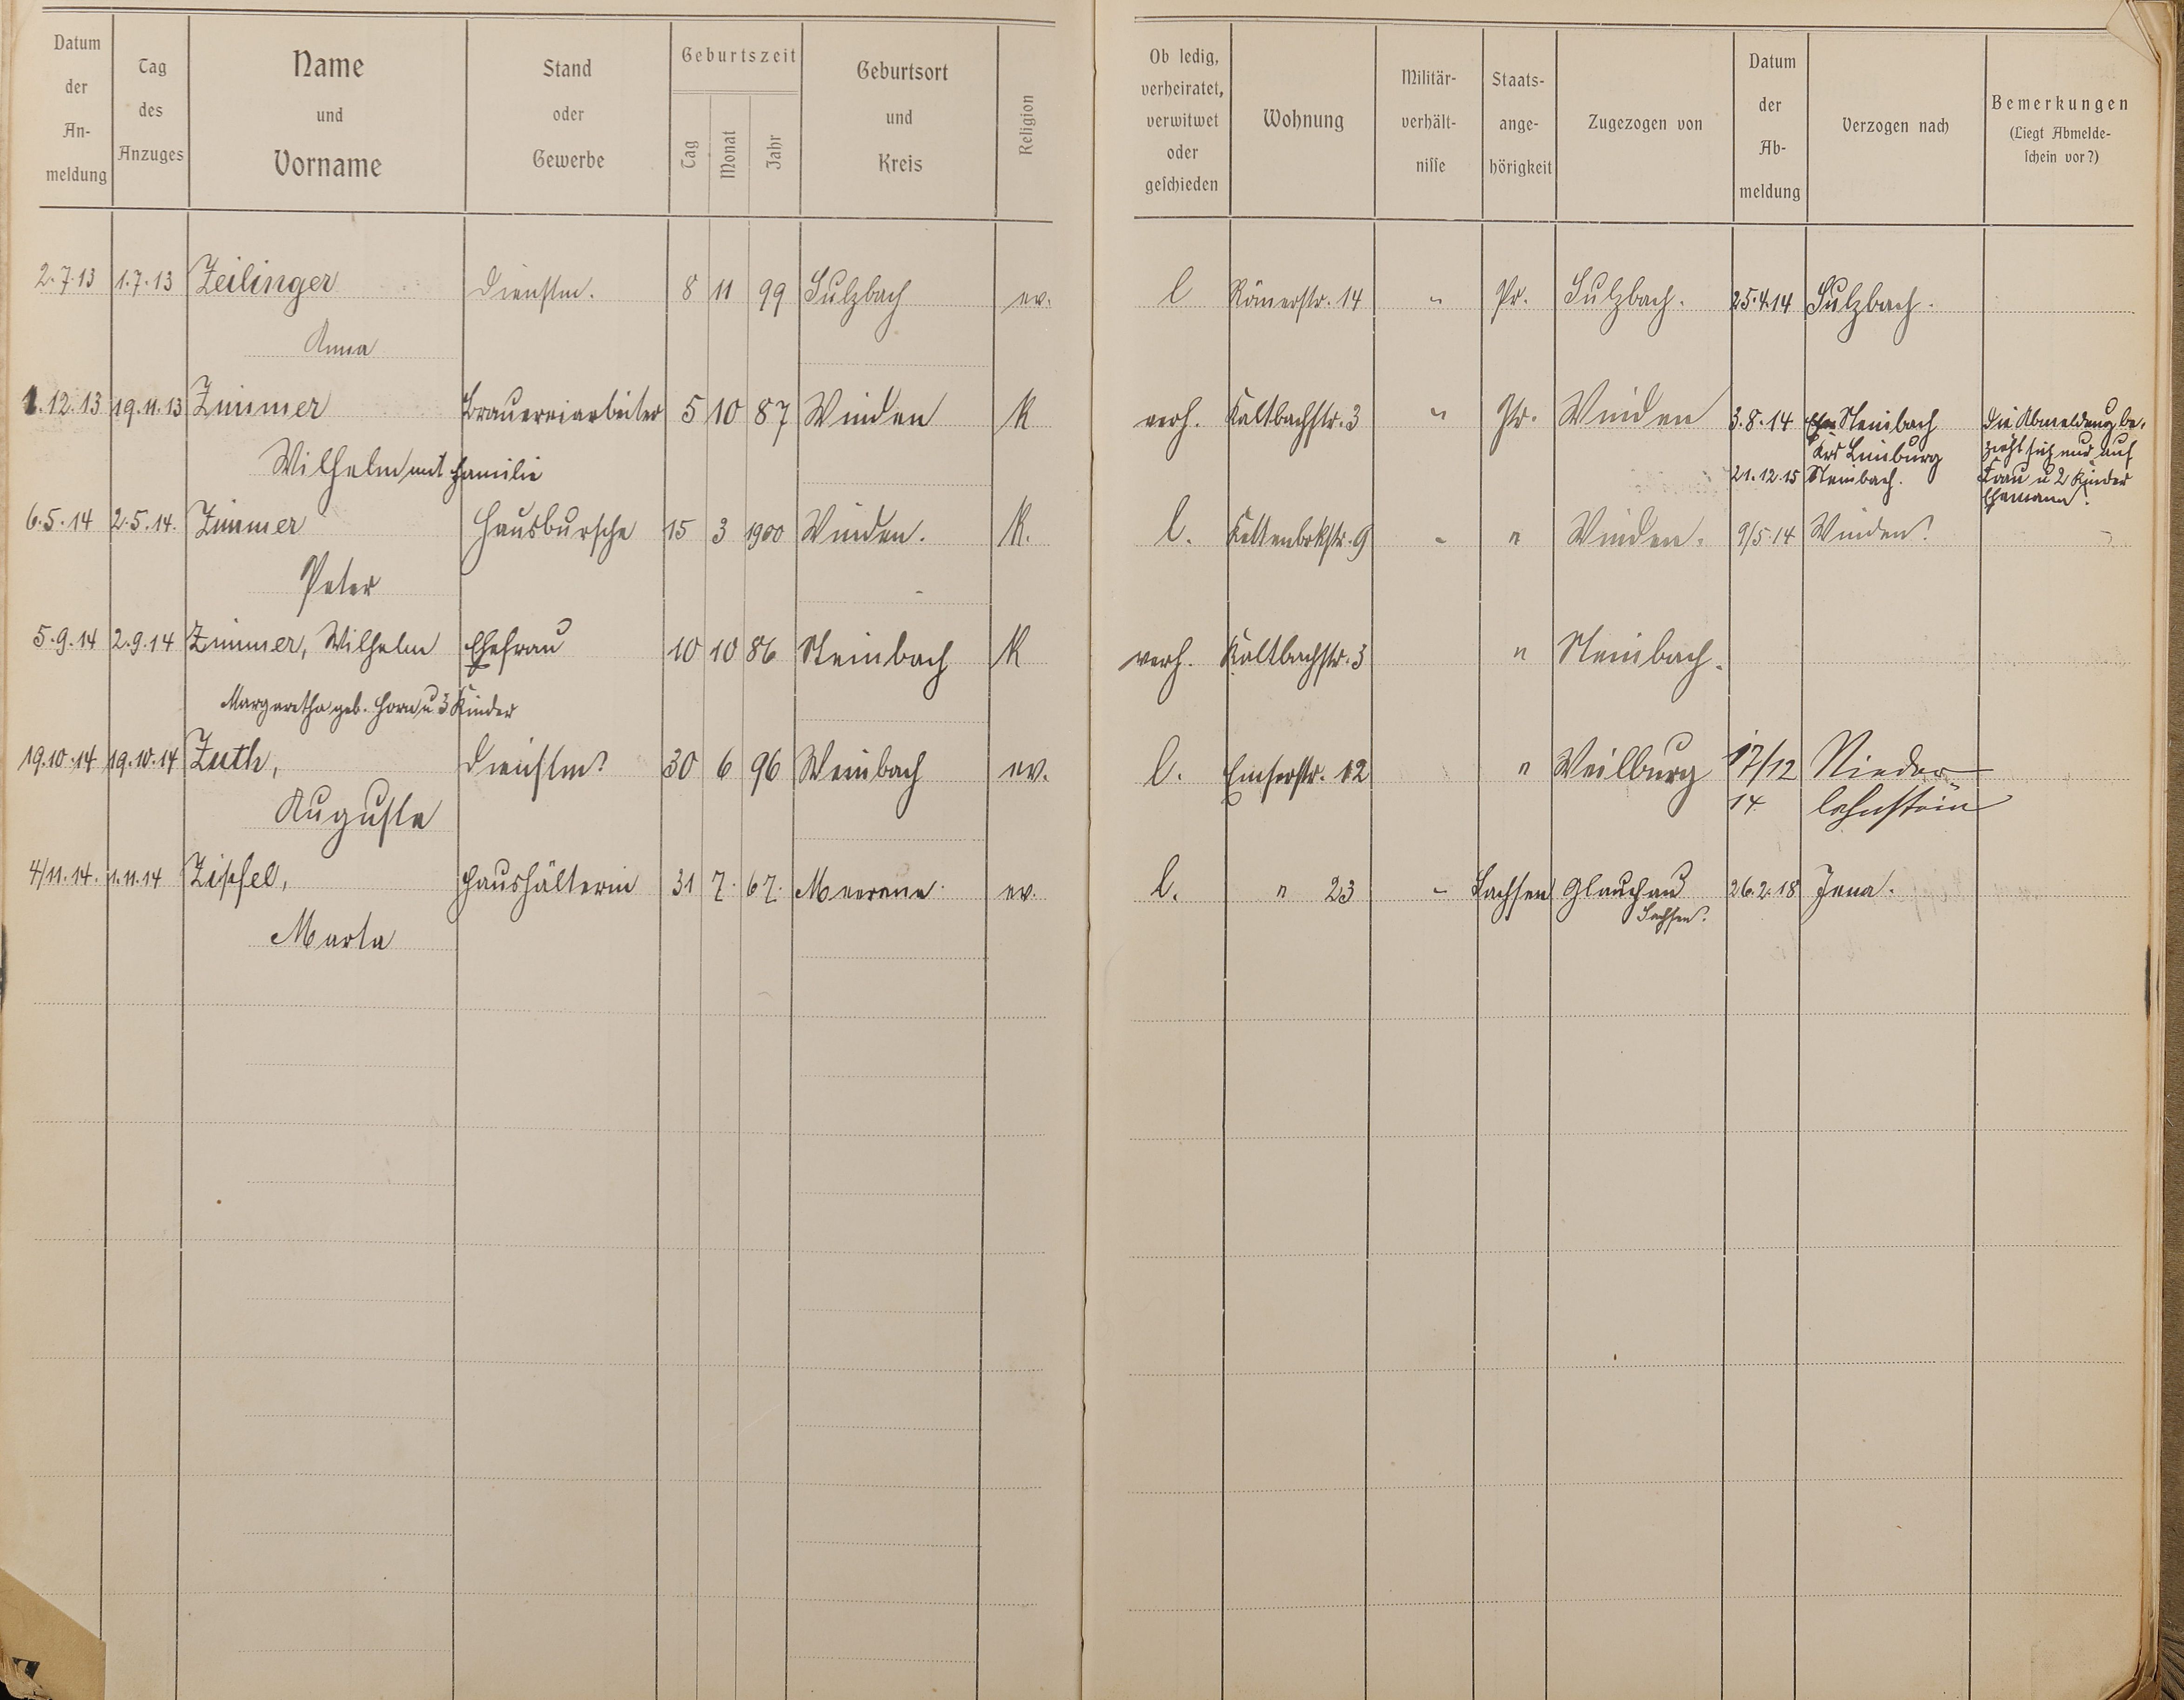 Datum der An-meldung | Tag des Anzuges | Name und Vorname | Stand oder Gewerbe | Geburtszeit Tag Monat Jahr | Geburtsort und Kreis | Religion | Ob ledig, verheiratet, verwitwet oder geschieden | Wohnung | Militär-verhält-nisse | Staats-ange-hörigkeit | Zugezogen von | Datum der Ab-meldung | Verzogen nach | Bemerkungen (Liegt Abmelde-schein vor?)
2.7.13 1.7.13 Zeilinger Dienstm. 8 11 99 Sulzbach ev. l Römerstr. 14 " Pr. Sulzbach. 25.4.14 Sulzbach.
Anna
1.12.13 19.11.13 Zimmer Brauereiarbeiter 5 10 87 Winden K verh. Kaltbachstr. 3 " Pr. Winden 3.8.14 Steinbach Die Abmeldung be-
Krs Limburg zieht sich nur auf
Wilhelm mit Familie 21.12.15 Steinbach. Frau u 2 Kinder
Ehemann.
6.5.14 2.5.14. Zimmer Hausbursche 15 3 1900 Winden. K. l. 9 - " Winden. 9/5.14 Winden
Peter
5.9.14 2.9.14 Zimmer, Wilhelm Ehefrau 10 10 86 Steinbach K verh. Kaltbachstr. 3 " Steinbach.
Margaretha geb. Horn u 3 Kinder
19.10.14 19.10.14 Zuth, Dienstm 30 6 96 Weinbach ev. l. Emserstr. 12 " Weilburg 17/12 Nieder
Auguste 14 lahnstein
4/11.14. 1.11.14 Zipfel, Haushälterin 31 7. 67. Meerane. ev. l. " 23 - Sachsen Glauchau 26.2.18 Jena.
Sachsen.
Marta